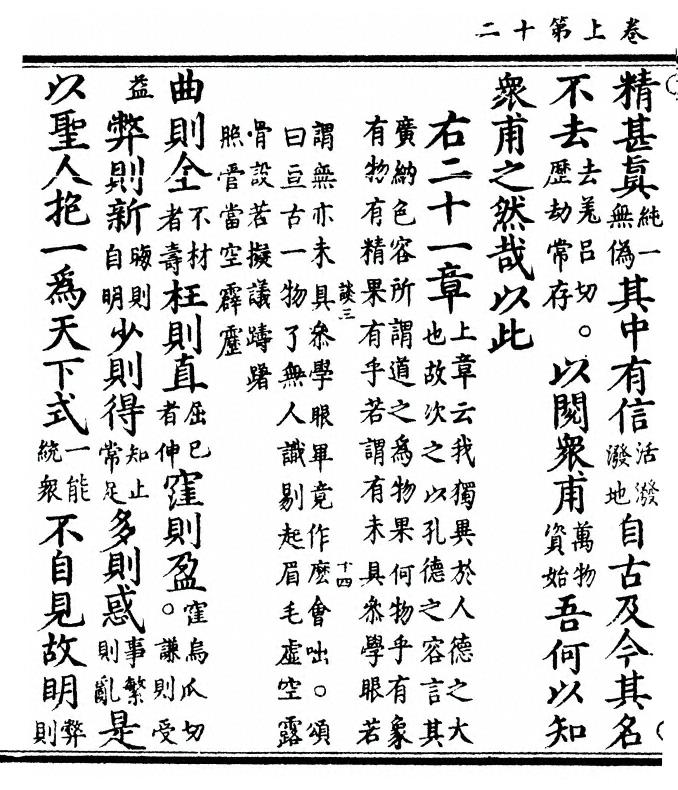 卷上第十二
精甚眞純一無偽其中有信活潑潑地自古及今其名
不去去羌呂切。歷劫常存以閱衆甫萬物資始吾何以知
衆甫之然哉以此
右二十一章上章云我獨異於人德之大
也故次之以孔德之容言其
廣納色容所謂道之爲物果何物乎有象
有物有精果有乎若謂有未具叅學眼若
談三 十四
謂無亦未具叅學眼畢竟作麽會咄。頌
曰亘古一物了無人識剔起眉毛虛空露
骨設若擬議躊躇
照管當空霹靂
曲則全不材者壽枉則直屈已者伸窪則盈。窪烏瓜切謙則受
益弊則新晦則自明少則得知止常足多則惑事繁則亂是
以聖人抱一爲天下式一能統衆不自見故明弊則